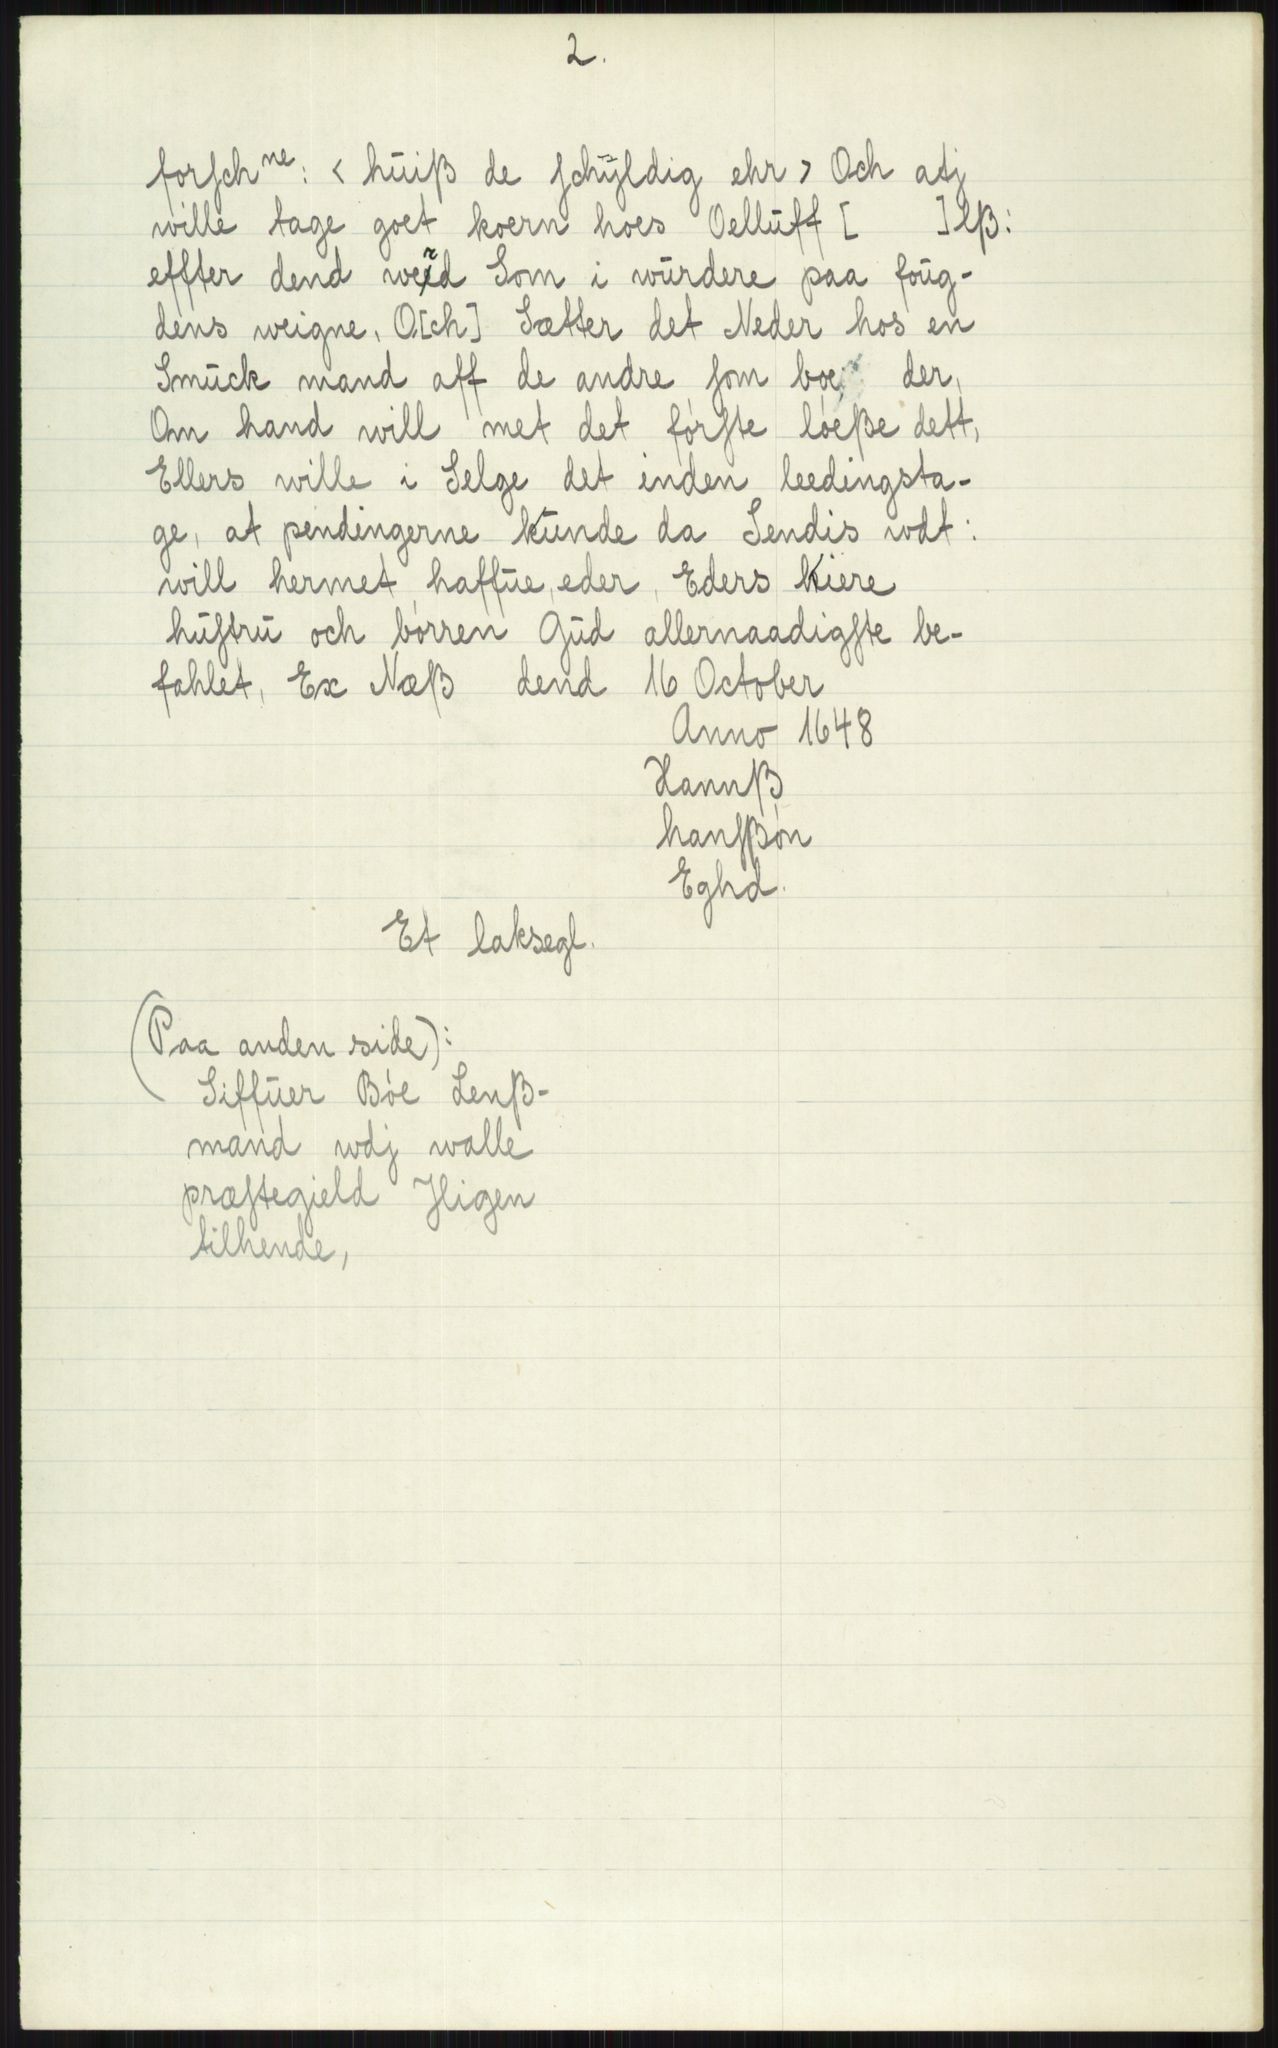 2.
forſchⁿᵉ: < hūiß de ſchÿldig ehr > Och atj
wille tage goet koern hoes Oellūff [ ]lß:
effter dend Som i wūrdere paa foūg-
dens weigne, O[ch] Sætter det Neder hos en
Smūck mand aff de andre ſom boe, der,
Om hand will met det fórſte lóeße dett,
Ellers wille i Selge det inden leedingsta-
ge, at pendingerne kūnde da Sendis wdt:
will hermet haffūe eder, Eders kiere
hūſtrū och bórren Gūd allernaadigſte be-
fahlet, Ex Næß dend 16 October
Anno 1648
Hannß
hanſßón
Eghd.
Et laksegl.
(Paa anden side):
Siffūer Bóe Lenß-
mand wdj walle
præſtegield Jligen
tilhende,